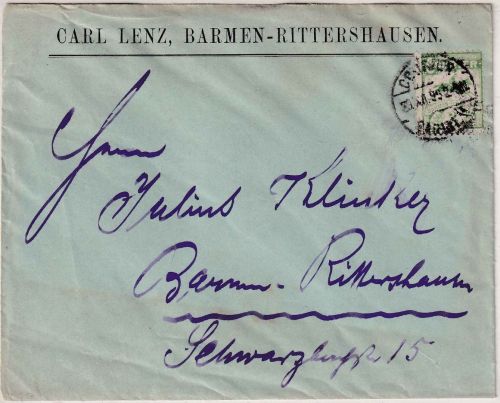 CARL LENZ, BARMEN-RITTERSHAUSEN.
Herrn
Julius Klinker
Barmen-Rittershausen
15